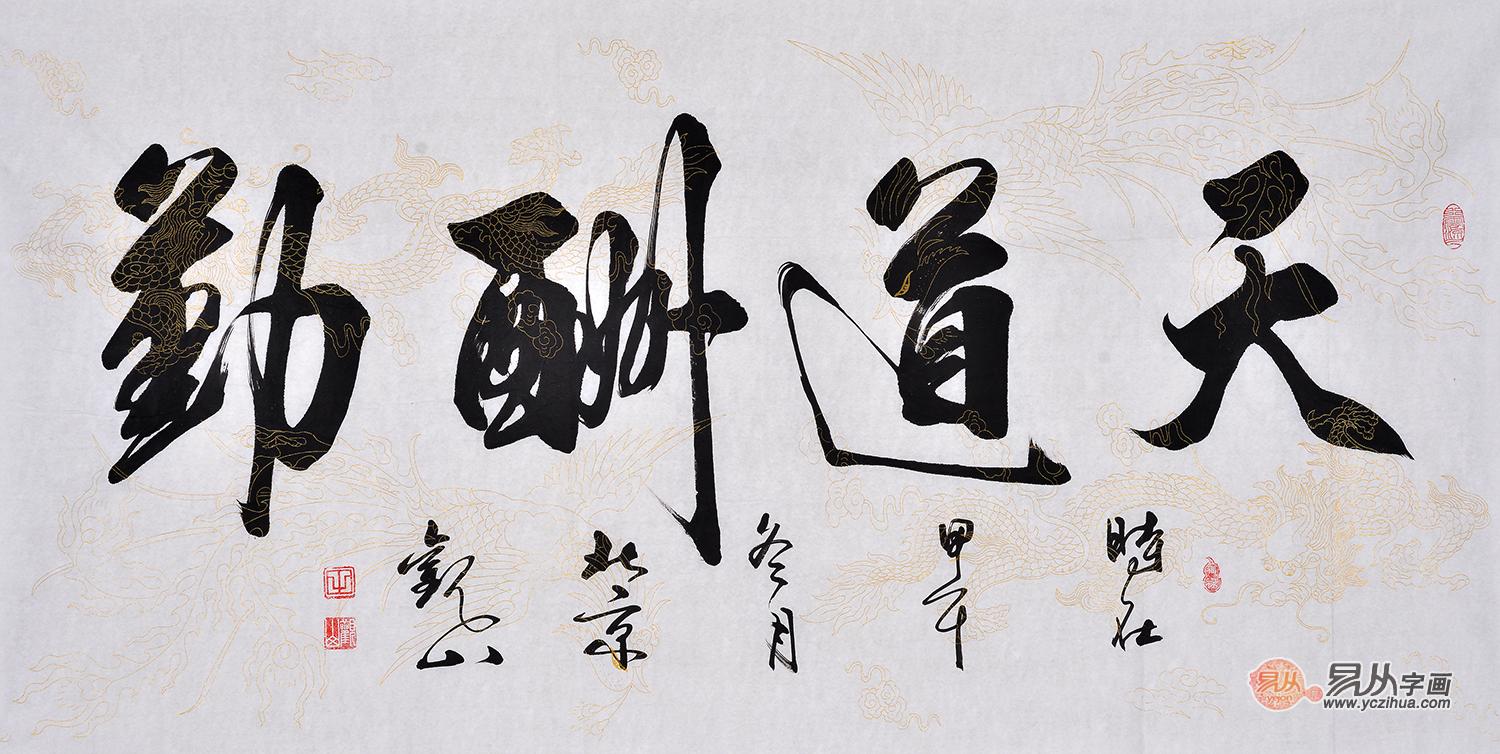 天道酬勤
時在
甲午
冬月
北京
觀山
易从
yigon
易从字画
www.yczihua.com